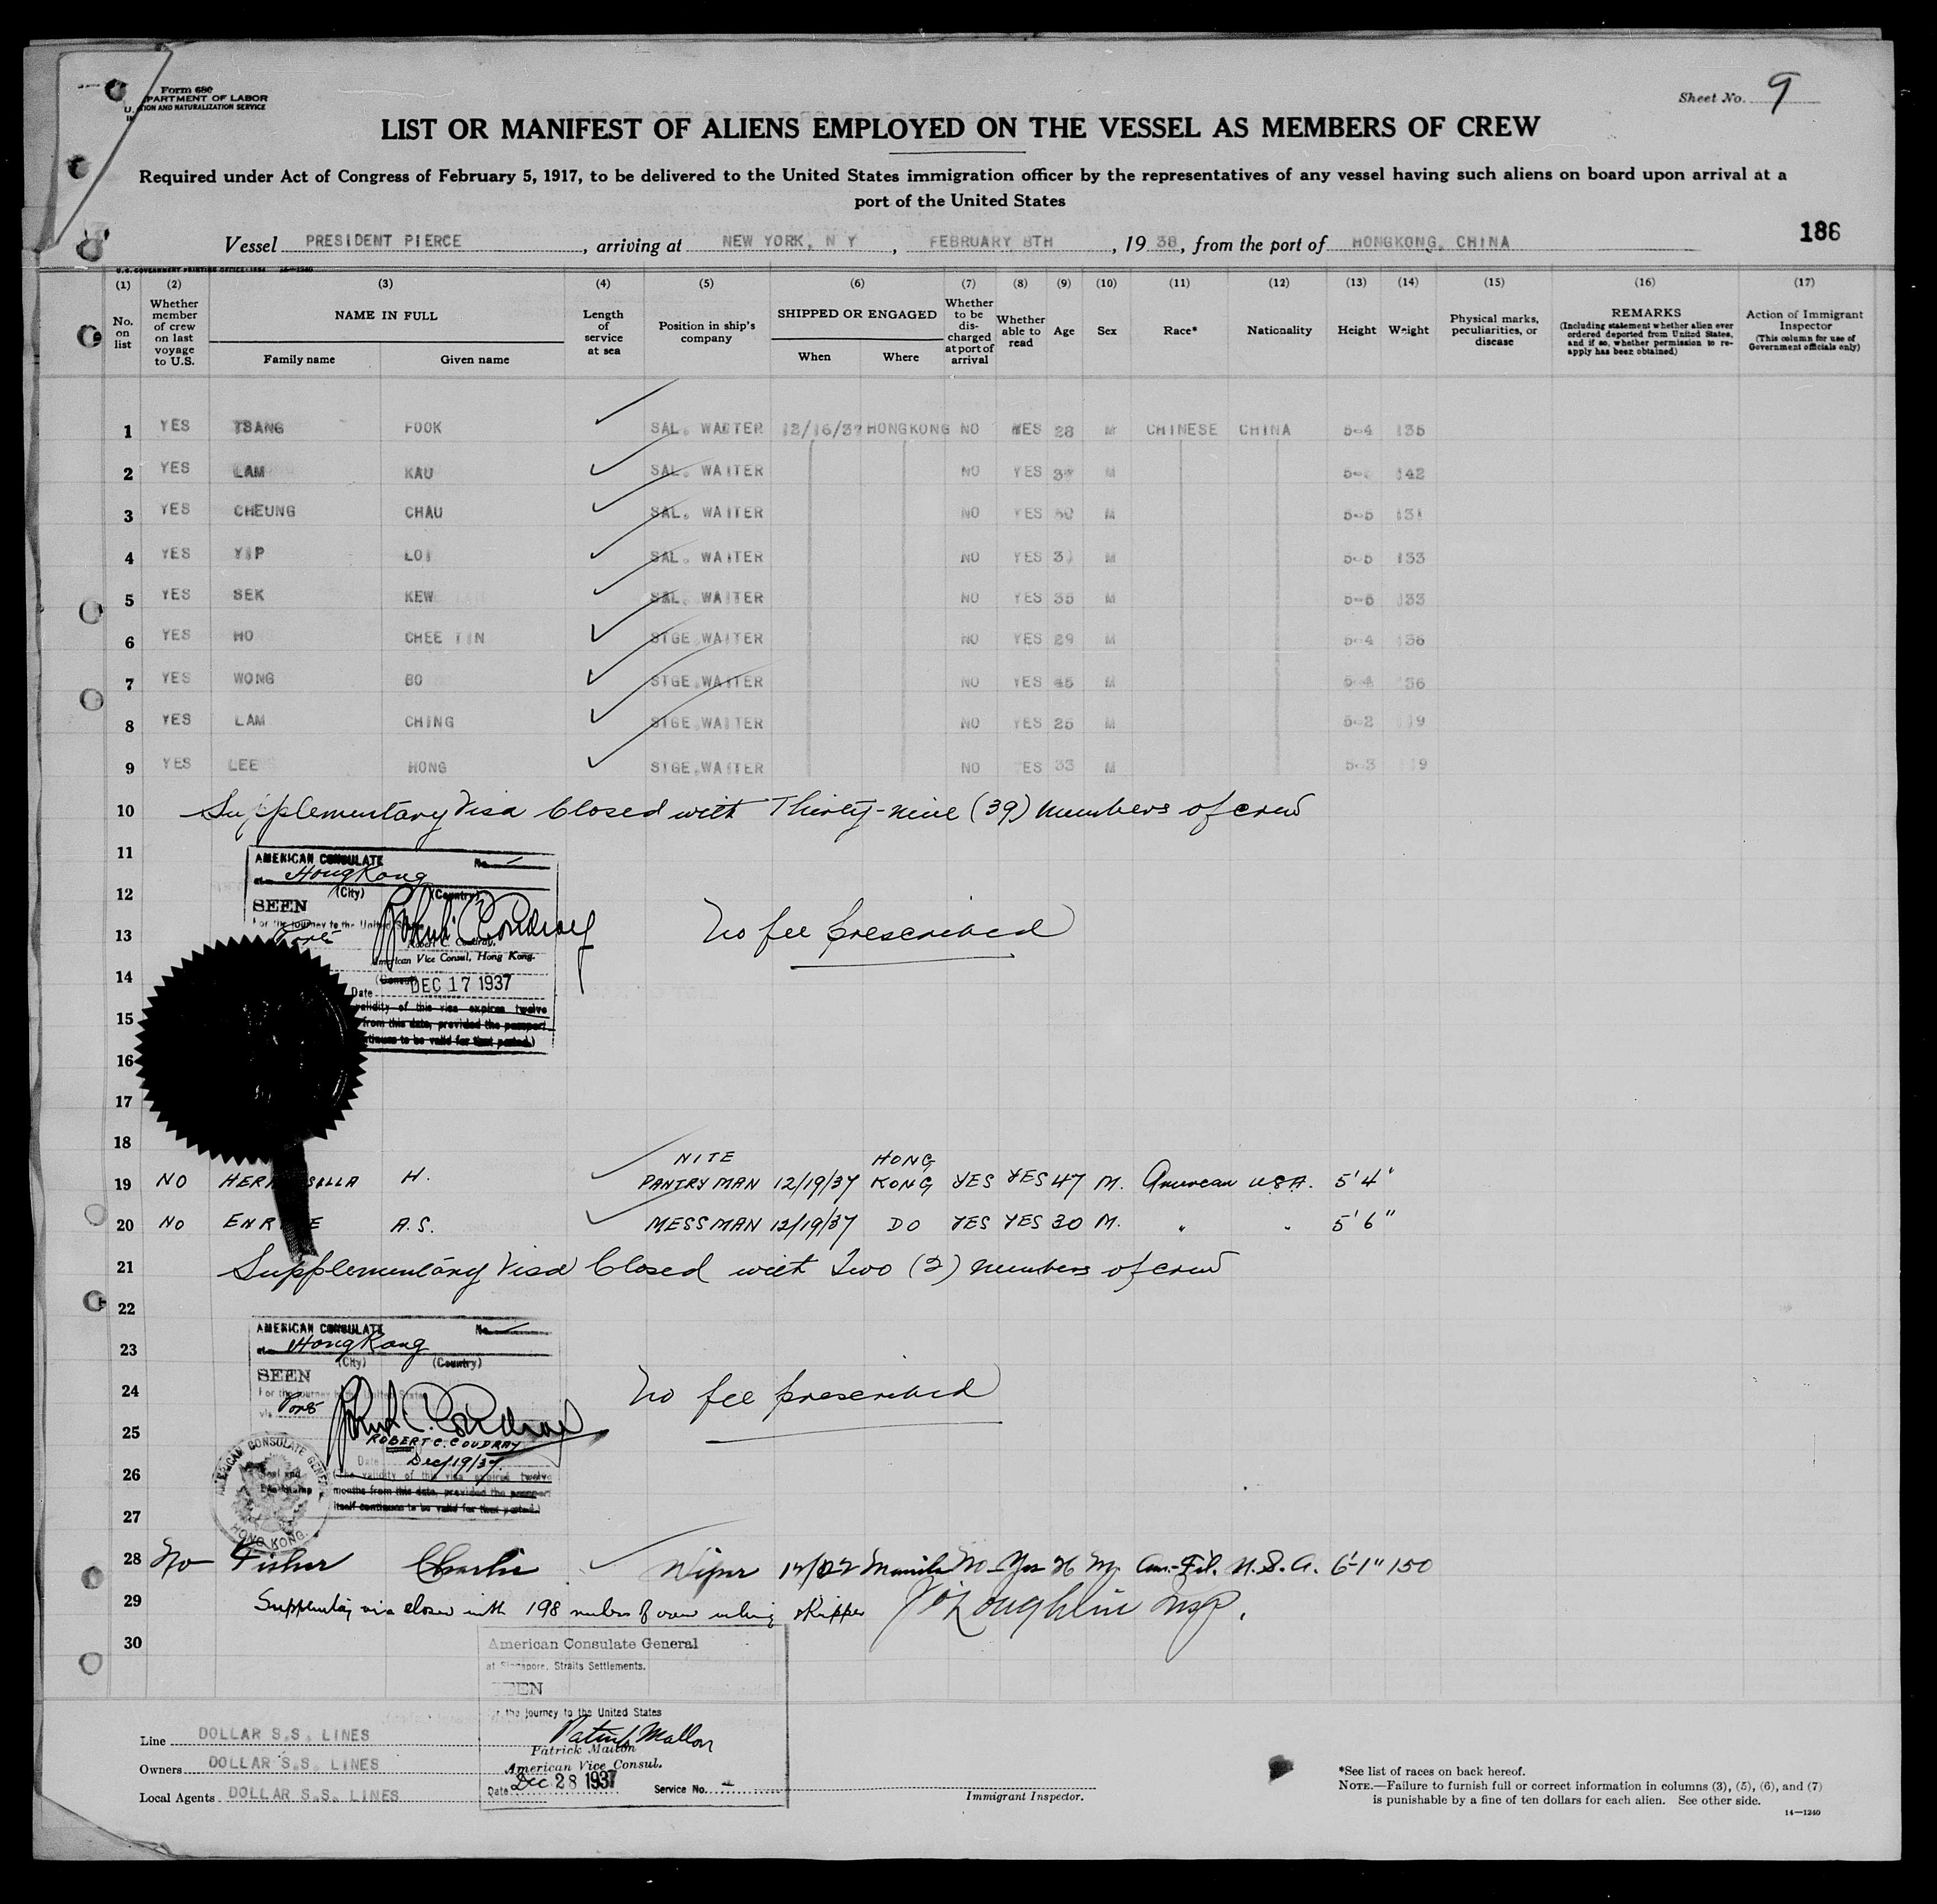 Form 680
PARTMENT OF LABOR
TION AND NATURALIZATION SERVICE
Sheet No. 9
LIST OR MANIFEST OF ALIENS EMPLOYED ON THE VESSEL AS MEMBERS OF CREW
Required under Act of Congress of February 5, 1917, to be delivered to the United States immigration officer by the representatives of any vessel having such aliens on board upon arrival at a
port of the United States
Vessel PRESIDENT PIERCE, arriving at NEW YORK, N Y, FEBRUARY 8TH, 1938, from the port of HONGKONG, CHINA
186
U.S. GOVERNMENT PRINTING OFFICE: 1934 14—1240
(1) (2) (3) (4) (5) (6) (7) (8) (9) (10) (11) (12) (13) (14) (15) (16) (17)
No. on list
Whether member of crew on last voyage to U.S.
NAME IN FULL
Family name Given name
Length of service at sea
Position in ship's company
SHIPPED OR ENGAGED
When Where
Whether to be discharged at port of arrival
Whether able to read
Age
Sex
Race*
Nationality
Height
Weight
Physical marks, peculiarities, or disease
REMARKS
(Including statement whether alien ever ordered deported from United States, and if so, whether permission to reapply has been obtained)
Action of Immigrant Inspector
(This column for use of Government officials only)
1 YES TSANG FOOK SAL. WAITER 12/16/37 HONGKONG NO YES 28 M CHINESE CHINA 5-4 135
2 YES LAM KAU SAL. WAITER NO YES M 142
3 YES CHEUNG CHAU SAL. WAITER NO YES M 5-5 131
4 YES YIP LOI SAL. WAITER NO YES 31 M 5-5 133
5 YES SEK KEW SAL. WAITER NO YES 35 M 133
6 YES HO CHEE TIN STGE.WAITER NO YES 29 M 5-4 136
7 YES WONG BO STGE.WAITER NO YES 45 M 5-4 136
8 YES LAM CHING STGE.WAITER NO YES 25 M 5-2 119
9 YES LEE HONG STGE.WAITER NO YES 33 M 5-3 119
10 Supplementary Visa Closed with Thirty-nine (39) members of crew
11
AMERICAN CONSULATE No.
at HongKong
12
(City) (Country)
SEEN
For the journey to the United States
13
Robert C. Coudray
No fee prescribed
Robert C. Coudray,
American Vice Consul, Hong Kong.
14
(Consul)
Date DEC 17 1937
15
validity of this visa expires twelve
from this date, provided the passport
continues to be valid for that period.)
16
17
18
19 NO H. NITE PANTRYMAN 12/19/37 HONG KONG YES YES 47 M. American USA. 5'4"
20 NO A.S. MESSMAN 12/19/37 DO YES YES 30 M. " " 5'6"
21 Supplementary Visa Closed with Two (2) members of crew
22
AMERICAN CONSULATE No.
23
at HongKong
(City) (Country)
SEEN
24
For the journey to the United States
via
No fee prescribed
Robert C. Coudray
25
ROBERT C. COUDRAY
Date Dec/19/37
AMERICAN CONSULATE GENERAL
HONG KONG.
26
(The validity of this visa expires twelve
months from this date, provided the passport
itself continues to be valid for that period.)
27
28 No Fisher Charlie Wiper Manila No Yes 26 M. Am.-Fil. U.S.A. 6'-1" 150
29 closed with 198 skipper J O'Loughlin Insp.
30
American Consulate General
at Singapore, Straits Settlements.
SEEN
For the journey to the United States
Patrick Mallon
Patrick Mallon
American Vice Consul.
Date Dec 28 1937 Service No.
Line DOLLAR S.S. LINES
Owners DOLLAR S.S. LINES
Local Agents DOLLAR S.S. LINES
Immigrant Inspector.
*See list of races on back hereof.
NOTE.—Failure to furnish full or correct information in columns (3), (5), (6), and (7)
is punishable by a fine of ten dollars for each alien. See other side.
14—1240